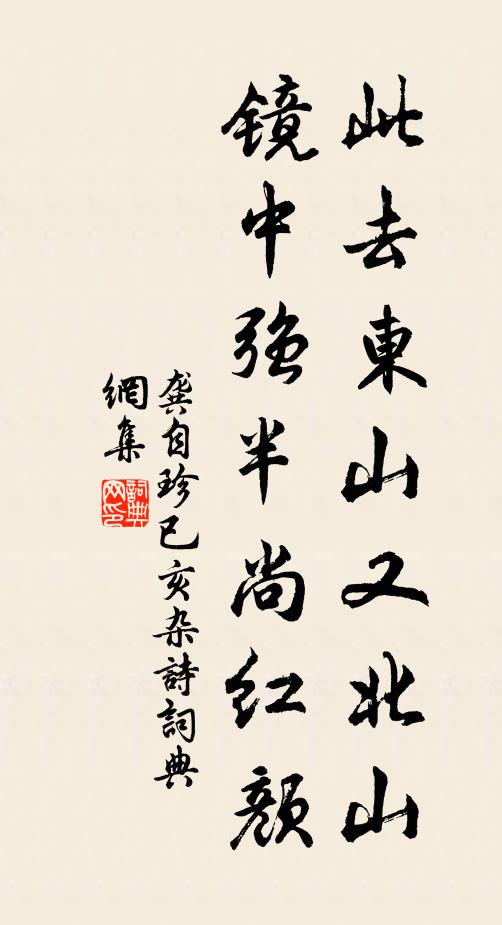 此去東山又北山
镜中强半尚红颜
龚自珍已亥杂詩詞典
網集
詞典
网印